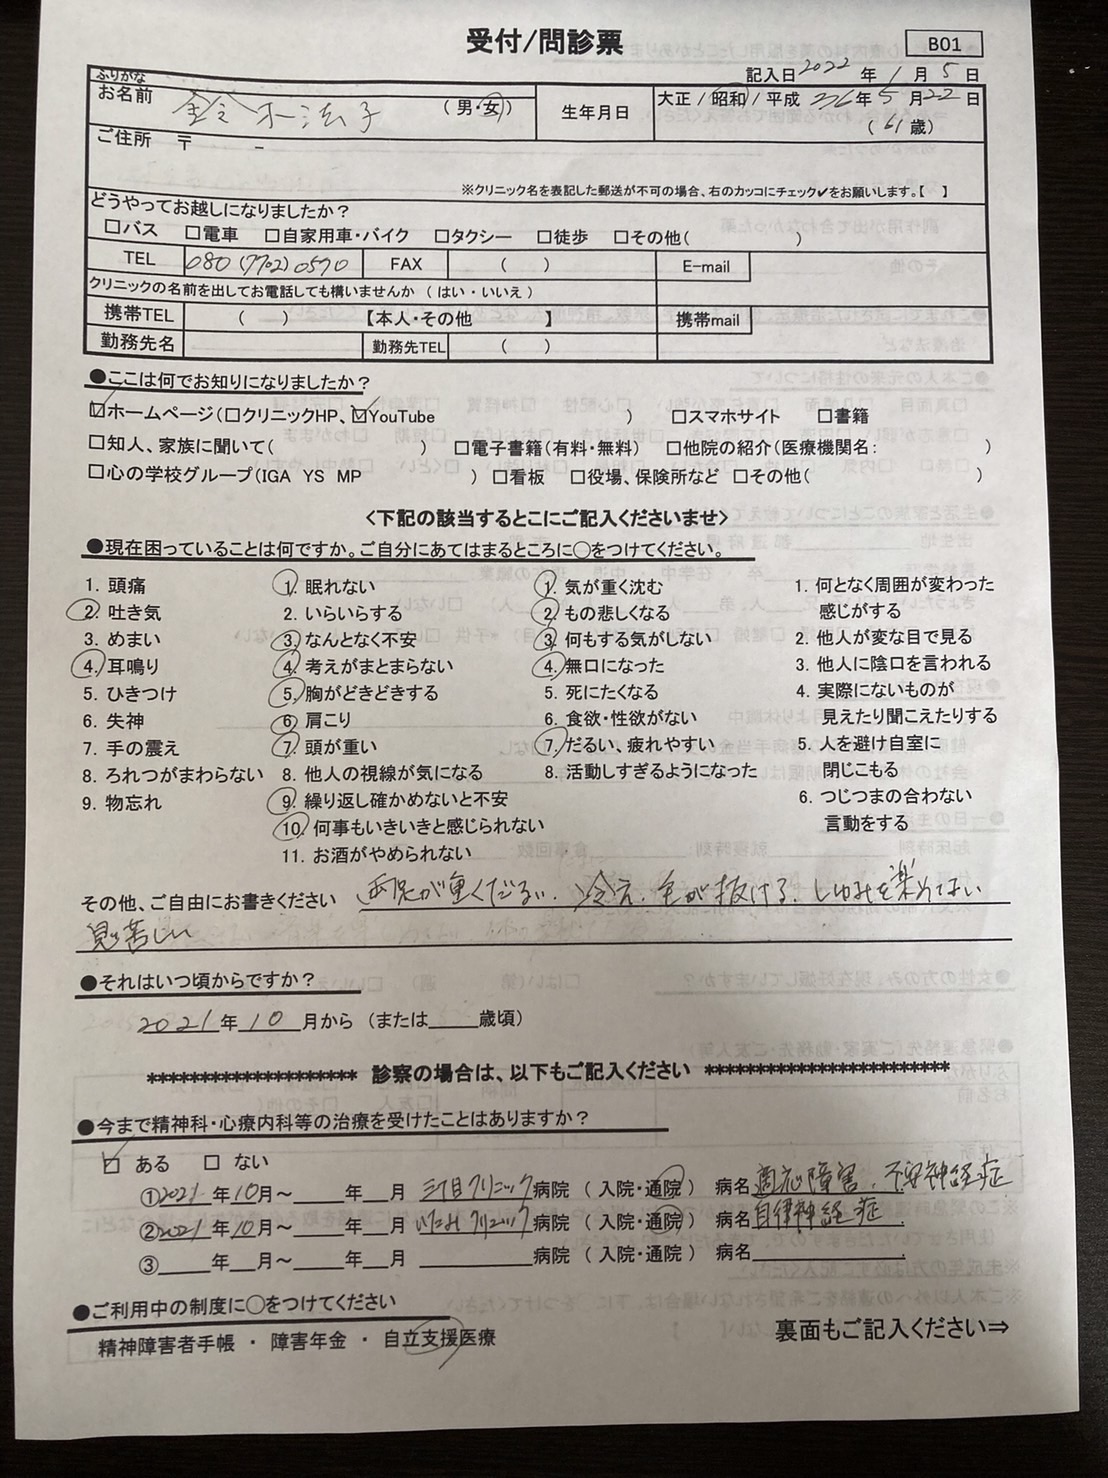 受付/問診票
B01
記入日2022年1月5日
ふりがな
お名前 鈴木法子 (男・女) 生年月日 大正/昭和/平成 36年5月22日
(61歳)
ご住所 〒 −
※クリニック名を表記した郵送が不可の場合、右のカッコにチェック✔をお願いします。【 】
どうやってお越しになりましたか?
□バス □電車 □自家用車・バイク □タクシー □徒歩 □その他( )
TEL 080(7702)0570 FAX ( ) E-mail
クリニックの名前を出してお電話しても構いませんか (はい・いいえ)
携帯TEL ( ) 【本人・その他 】 携帯mail
勤務先名 勤務先TEL ( )
●ここは何でお知りになりましたか?
☑ホームページ(□クリニックHP、☑YouTube ) □スマホサイト □書籍
□知人、家族に聞いて( ) □電子書籍(有料・無料) □他院の紹介(医療機関名: )
□心の学校グループ(IGA YS MP ) □看板 □役場、保険所など □その他( )
<下記の該当するとこにご記入くださいませ>
●現在困っていることは何ですか。ご自分にあてはまるところに○をつけてください。
1. 頭痛
②. 吐き気
3. めまい
④. 耳鳴り
5. ひきつけ
6. 失神
7. 手の震え
8. ろれつがまわらない
9. 物忘れ
①. 眠れない
2. いらいらする
③. なんとなく不安
④. 考えがまとまらない
⑤. 胸がどきどきする
⑥. 肩こり
⑦. 頭が重い
8. 他人の視線が気になる
⑨. 繰り返し確かめないと不安
⑩. 何事もいきいきと感じられない
11. お酒がやめられない
①. 気が重く沈む
②. もの悲しくなる
③. 何もする気がしない
④. 無口になった
5. 死にたくなる
6. 食欲・性欲がない
⑦. だるい、疲れやすい
8. 活動しすぎるようになった
1. 何となく周囲が変わった
感じがする
2. 他人が変な目で見る
3. 他人に陰口を言われる
4. 実際にないものが
見えたり聞こえたりする
5. 人を避け自室に
閉じこもる
6. つじつまの合わない
言動をする
その他、ご自由にお書きください 両足が重くだるい、冷え、
息苦しい
●それはいつ頃からですか?
2021年10月から (または 歳頃)
******************** 診察の場合は、以下もご記入ください ***********************
●今まで精神科・心療内科等の治療を受けたことはありますか?
☑ ある □ ない
①2021年10月～ 年 月 三丁目クリニック病院 (入院・通院) 病名適応障害、不安神経症
②2021年10月～ 年 月 いたみクリニック病院 (入院・通院) 病名自律神経症
③ 年 月～ 年 月 病院 (入院・通院) 病名
●ご利用中の制度に○をつけてください
精神障害者手帳 ・ 障害年金 ・ 自立支援医療
裏面もご記入ください⇒